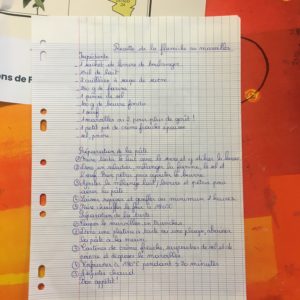 ons de F
Recette de la flamiche au maroilles
Ingrédients
- 1 sachet de levure de boulanger
- ml de lait
- 1 cuillère à soupe de sucre
- 250 g de farine
- 1 pincée de sel
- 100 g de beurre fondu
- 1 œuf
- 1 maroilles ou 2 pour plus de goût !
- 1 petit pot de crème fraîche épaisse
- sel, poivre
Préparation de la pâte
① Faire tiédir le lait avec le sucre et y délayer la levure
② Dans un saladier, mélanger la farine, le sel et
l'œuf. Bien pétrir pour ajouter le beurre
③ Ajouter le mélange lait / levure et pétrir pour
la pâte
④ Laisser reposer et gonfler au minimum 2 heures
⑤ Faire chauffer le four à 180°C
Préparation de la tarte
① Couper le maroilles en tranches
② Dans une platine à tarte ou une plaque, abaisser
la pâte à la main
③ Tartiner de crème fraîche, saupoudrer de sel et de
poivre et disposer le maroilles
④ Enfourner à 180°C pendant 20 minutes
⑤ Déguster chaud
Bon appétit !